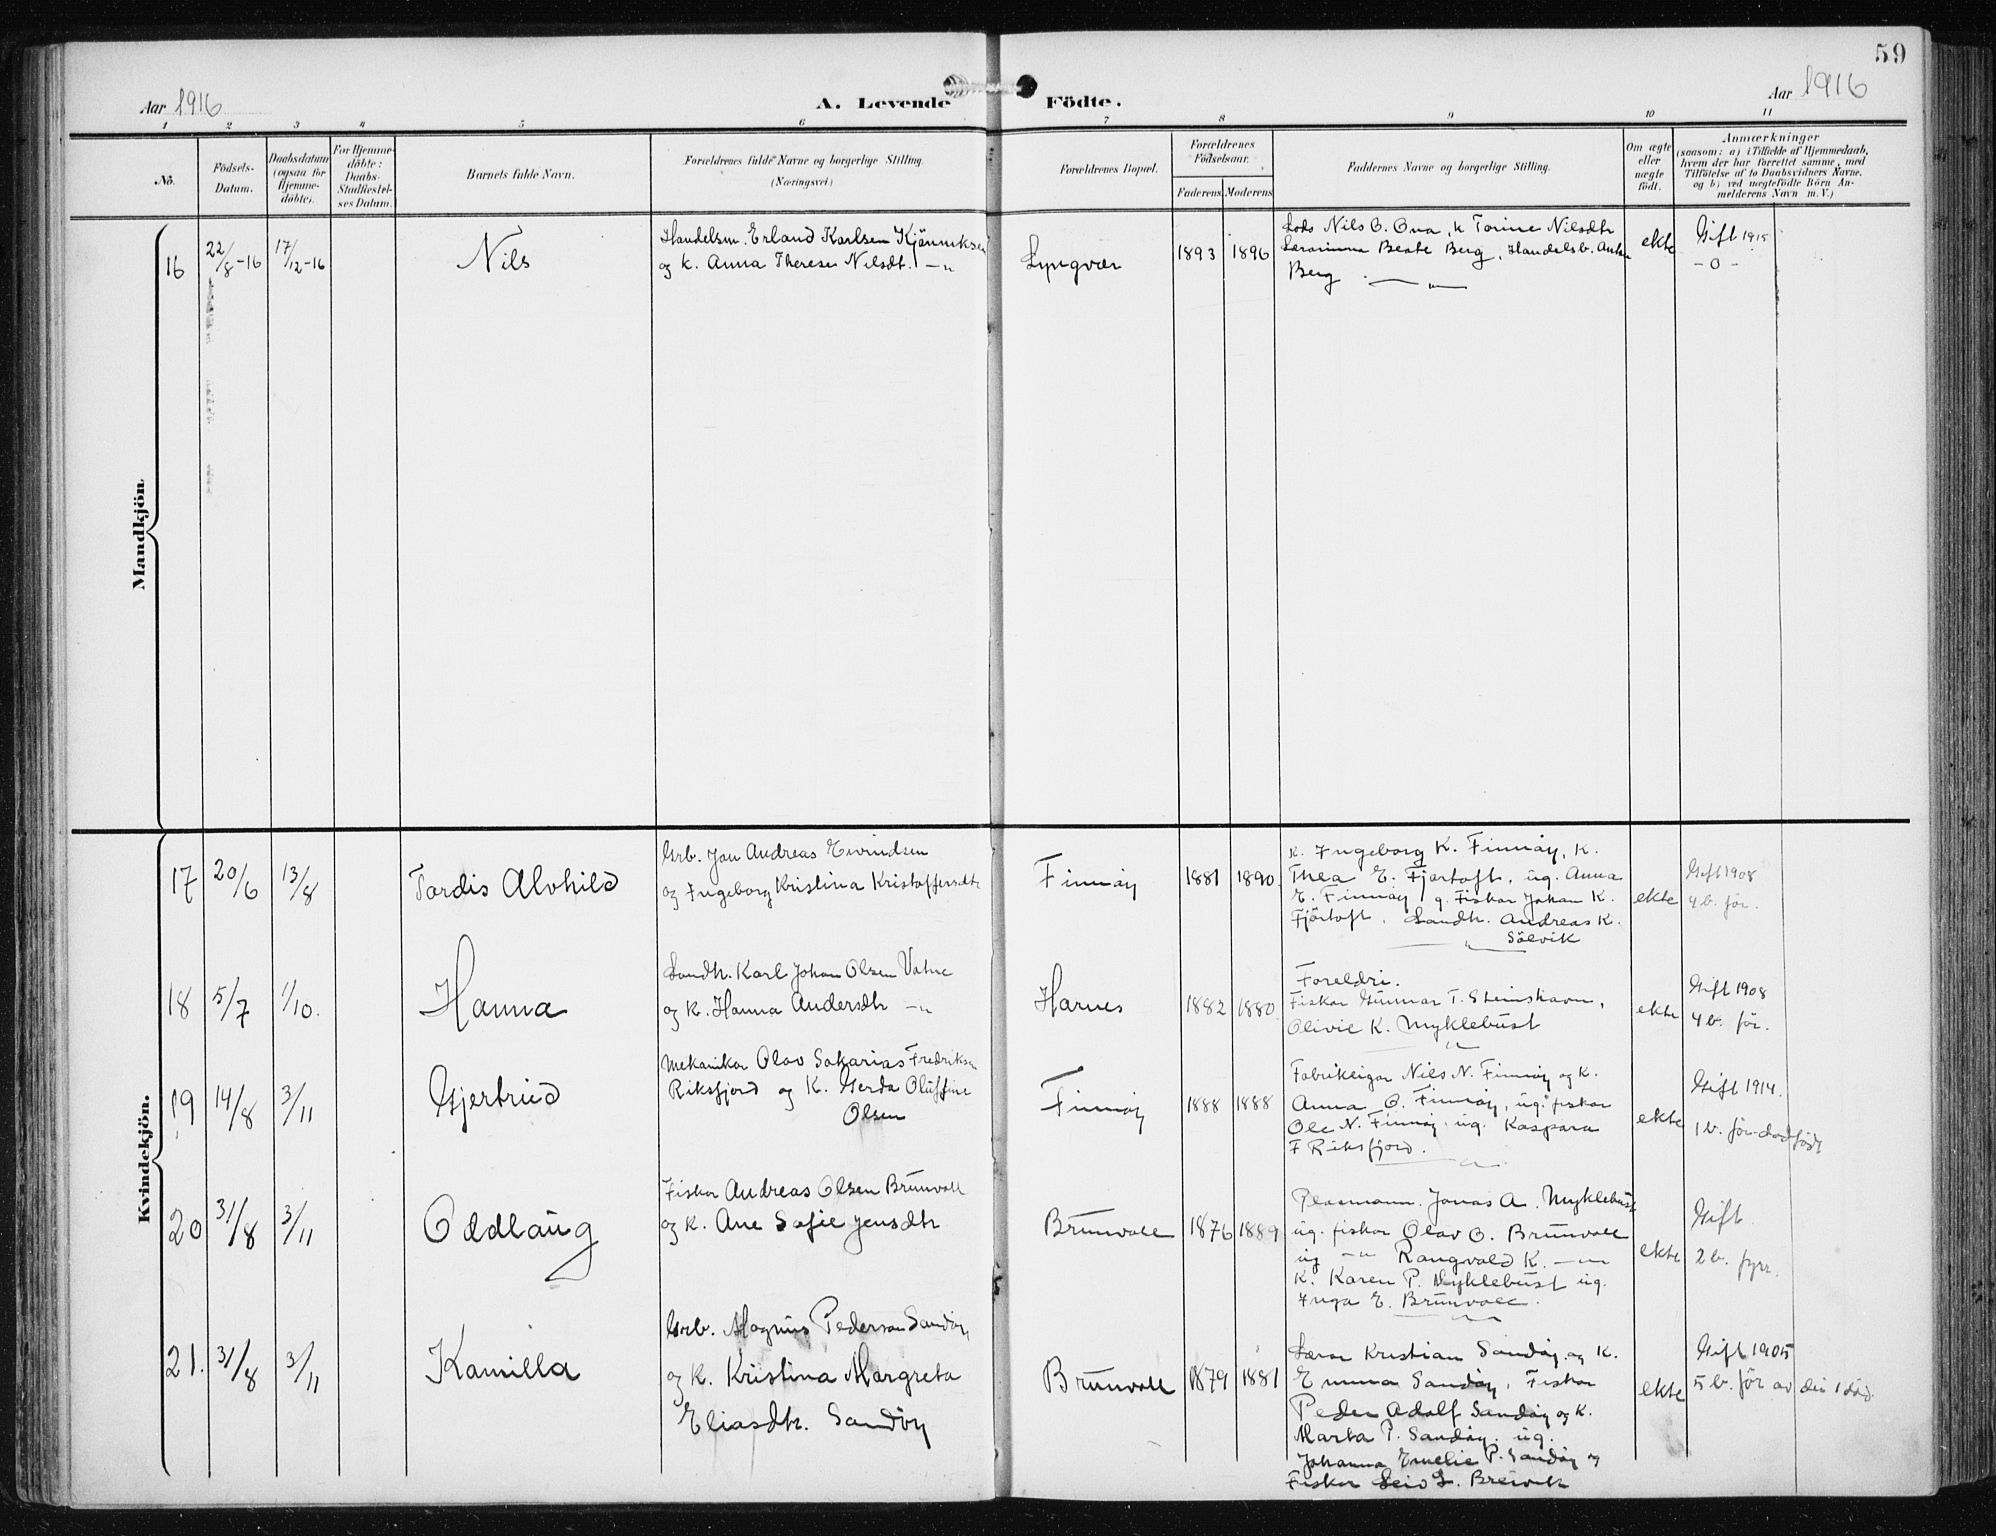 59
Aar 1916
A. Levende Födte.
Aar 1916
1 2 3 4 5 6 7 8 9 10 11
No.
Födsels-
Datum.
Daabsdatum
(ogsaa for
Hjemme-
döbte).
For Hjemme-
döbte:
Daabs-
Stadfæstel-
ses Datum.
Barnets fulde Navn.
Forældrenes fulde Navne og borgerlige Stilling.
(Næringsvei)
Forældrenes Bopæl.
Forældrenes
Födselsaar.
Faderens Moderens
Faddernes Navne og borgerlige Stilling.
Om ægte
eller
uægte
födt.
Anmærkninger
(saasom: a) i Tilfælde af Hjemmedaab,
hvem der har forrettet samme, med
Tilföielse af to Daabsvidners Navne,
og b) ved uægtefödte Börn An-
melderens Navn m. V.)
Mandkjön
16
22/8-16
17/12-16
Nils
Handelsm. Erland Karlsen
og k. Anna Therese Nilsdt. -"-
Lyngvær
1893 1896
Lods Nils O. Ona, k Torine Nilsdtr
Lærarinna Beate Berg, Handelsb.
Berg
ekte
Gift 1915
- 0 -
Kvindekjön.
17
20/6
13/8
Tordis Alvhild
Grb. Jon Andreas Eivindsen
og Ingeborg Kristina Kristoffersdtr
Finnöy
1881 1890.
K. Ingeborg K. Finnöy, K.
Thea E. Fjørtoft, ug. Anna
E. Finnöy, g. Fiskar Johan K.
Fjörtoft. Landh. Andreas K.
Sölvik
ekte
Gift 1908
4 b. för.
18
5/7
1/10.
Hanna
Landh. Karl Johan Olsen Vatne
og K. Hanna Andersdtr -"-
Harnes
1882 1880.
Foreldri.
Fiskar Gunnar T. Steinshavn,
Olivie K. Myklebust
ekte
Gift 1908
4 b. för.
19
14/8
3/11
Gjertrud
Mekanikar Olav Sakarias Fredriksen
Riksfjord og K. Gerda Oluffine
Olsen
Finnöy
1888 1888
Fabrikeigar Nils N. Finnöy og K.
Anna O. Finnöy, ug. fiskar
Ole N. Finnöy, ug. Kaspara
F Riksfjord.
ekte
Gift 1914.
1 b. för dödfödt
20
31/8
3/11
Oddlaug
Fiskar Andreas Olsen Brunvoll
og K. Ane Sofie Jensdtr
Brunvoll
1876 1889
Jonas A. Myklebust
ug. fiskar Olav O. Brunvoll
ug -"- Rangvald K. -"-
K. Karen P. Myklebust ug.
Inga E. Brunvoll.
ekte
Gift
2 b. fyrr.
21.
31/8
3/11
Kamilla
Grb. Magnus Pederson Sandöy
og K. Kristina Margreta
Eliasdtr. Sandöy
Brunvoll
1879 1881
Lærar Kristian Sandöy og K.
Emma Sandöy, Fiskar
Peder Adolf Sandöy og K.
Marta P. Sandöy. ug.
Johanna Emelie P. Sandöy og
Fiskar L. Breivik
ekte
Gift 1905
5 b. för av dei 1 död.